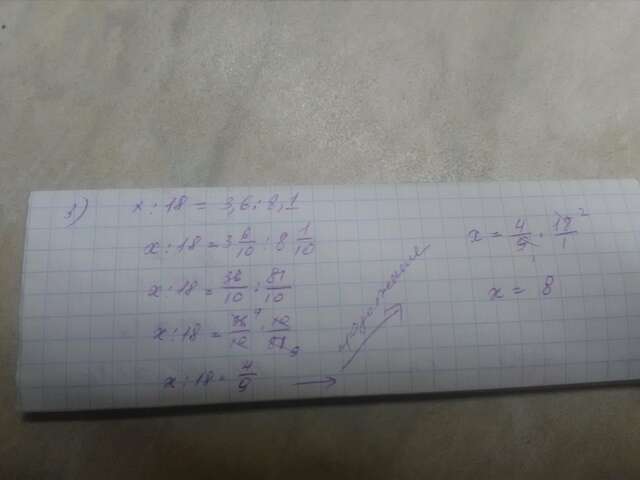 3) x : 18 = 3,6 : 8,1
x : 18 = 3 6/10 : 8 1/10
x : 18 = 36/10 : 81/10
x : 18 = 36/10 · 10/81 9
x : 18 = 4/9 →
продолжение
x = 4/9 · 18/1 2
1
x = 8